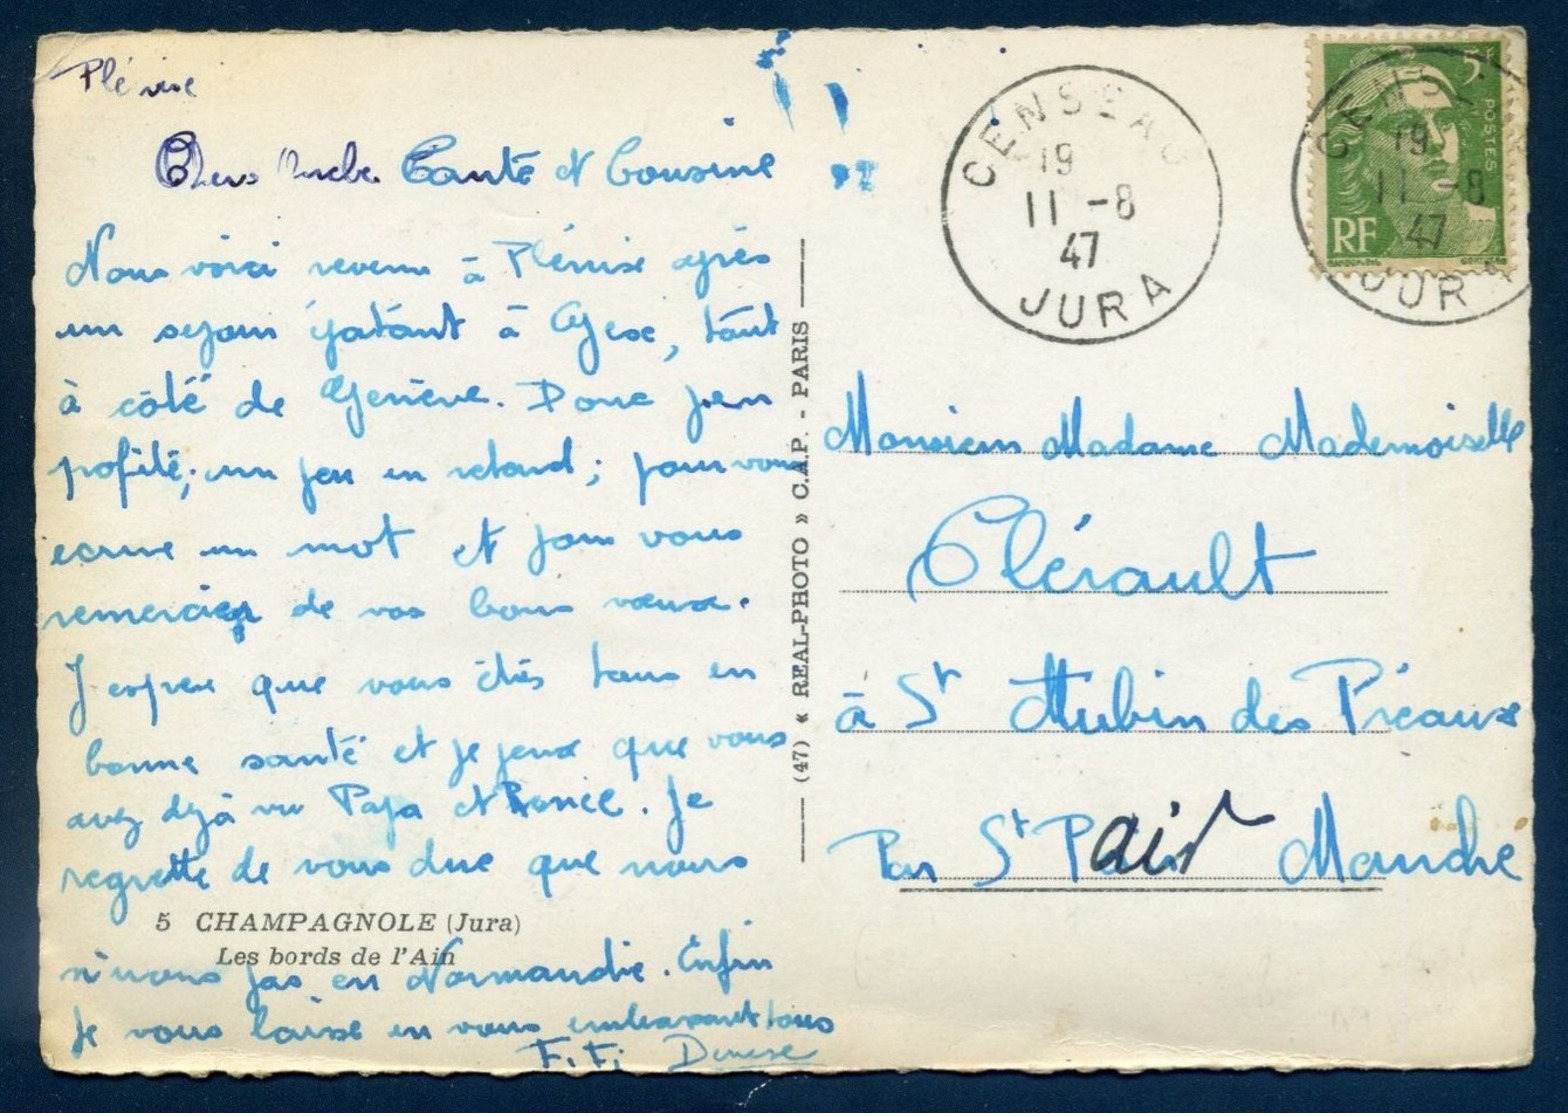 Plénise
Chers Oncle Tante et Cousine
Nous voici revenu à Plénise après
un sejour épatant à Gex, tout
à côté de Genève. Donc j'en
profite, un peu en retard; pour vous
ecrire un mot et pour vous
remercier de vos bons voeux.
J'espere que vous êtes tous en
bonne santé et je pense que vous
avez dejà vu Papa et
. Je
regrette de vous dire que nous
5 CHAMPAGNOLE (Jura)
Les bords de l'Ain
n'irons pas en Normandie. Enfin
je vous laisse en vous embrassant tous
Denise
(47) « REAL-PHOTO » C.A.P. - PARIS
CENSEAU
19
11 -8
47
JURA
5F
POSTES
RF
CENSEAU
19
11 -8
47
JURA
Monsieur Madame Mademoiselle
Clérault
à St Aubin des Préaux
Par St Pair Manche